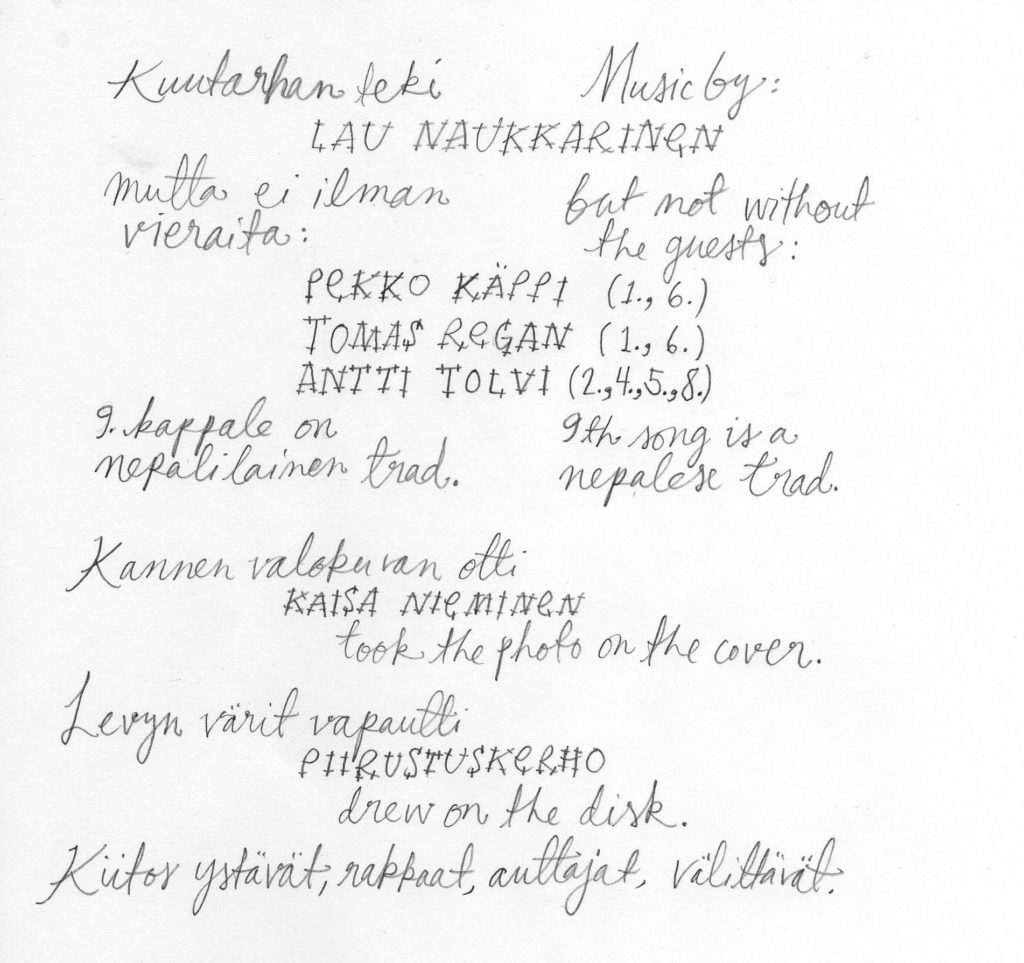 Kuutarhan teki Music by:
LAU NAUKKARINEN
mutta ei ilman but not without
vieraita: the guests:
PEKKO KÄPPI (1., 6.)
TOMAS REGAN (1., 6.)
ANTTI TOLVI (2.,4.,5.,8.)
9. kappale on 9th song is a
nepalilainen trad. nepalese trad.
Kannen valokuvan otti
KAISA NIEMINEN
took the photo on the cover.
Levyn värit vapautti
PIIRUSTUSKERHO
drew on the disk.
Kiitos ystävät, rakkaat, auttajat, välittävät.